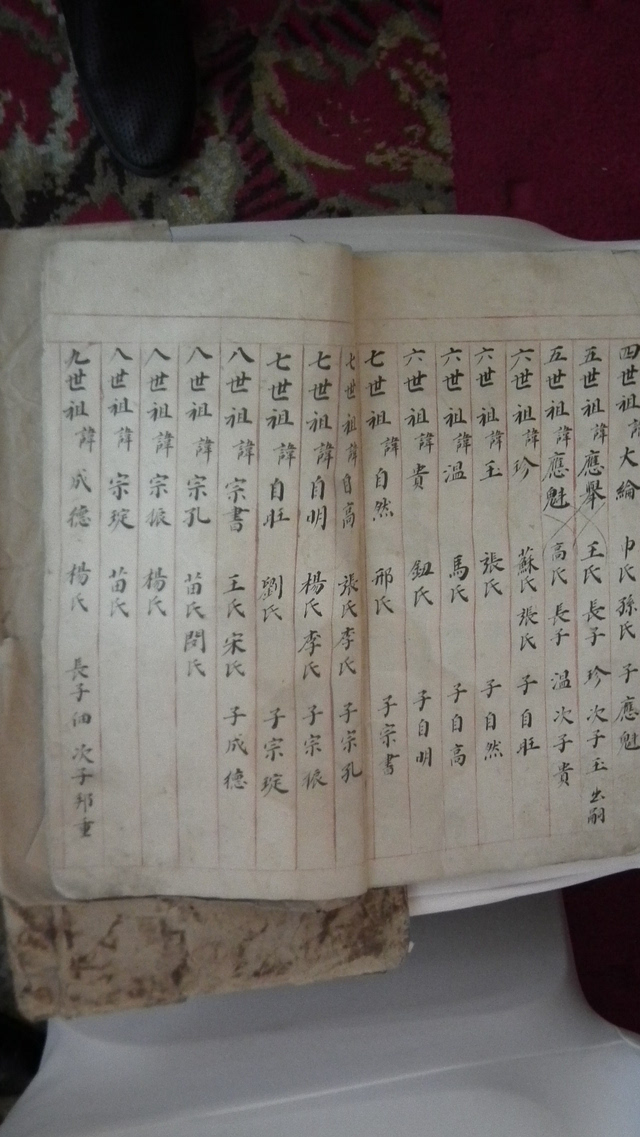 四世祖諱大綸 巾氏 孫氏 子應魁
五世祖諱應舉 王氏 長子珍 次子玉出嗣
五世祖諱應魁 高氏 長子溫 次子貴
六世祖諱珍 蘇氏 張氏 子自旺
六世祖諱玉 張氏 子自然
六世祖諱溫 馬氏 子自高
六世祖諱貴 鈕氏 子自明
七世祖諱自然 邢氏 子宗書
七世祖諱自高 張氏 李氏 子宗孔
七世祖諱自明 楊氏 李氏 子宗振
七世祖諱自旺 劉氏 子宗琔
八世祖諱宗書 王氏 宋氏 子成德
八世祖諱宗孔 苗氏 問氏
八世祖諱宗振 楊氏
八世祖諱宗琔 苗氏
九世祖諱成德 楊氏 長子佃 次子邦重